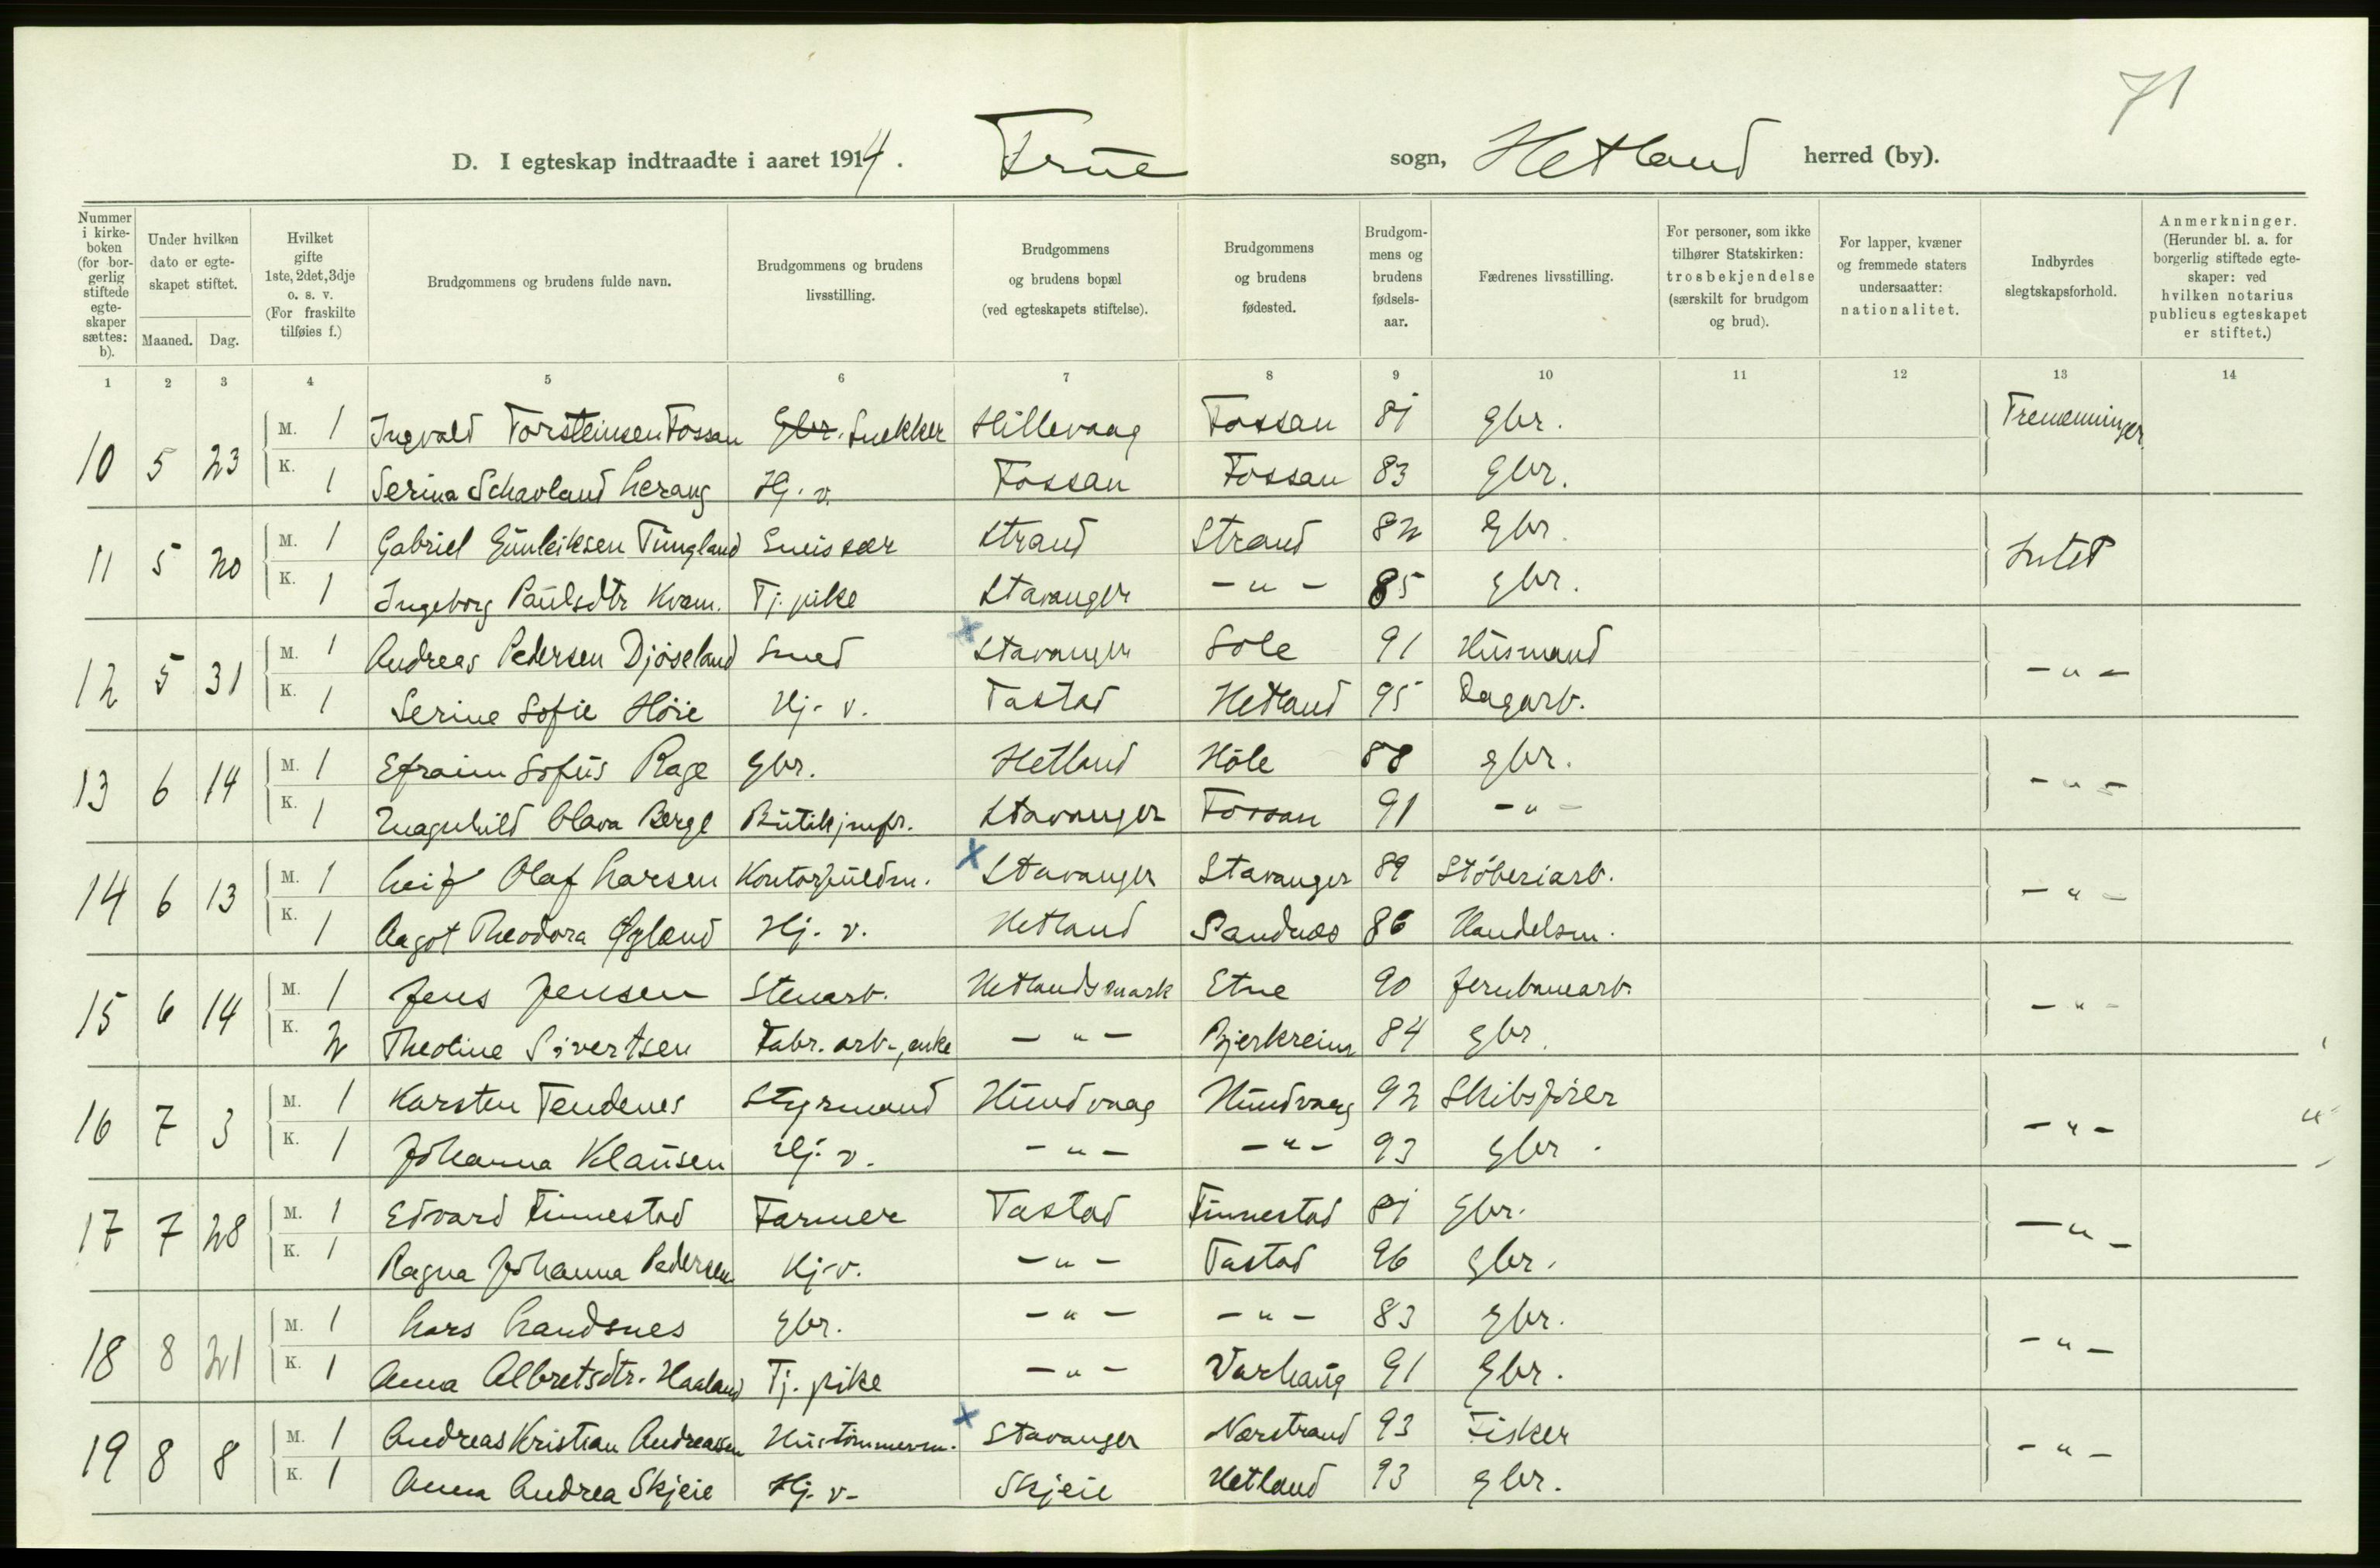 71
D. I egteskap indtraadte i aaret 1914. Frue sogn, Hetland herred (by).
Nummer i kirkeboken (for borgerlig stiftede egteskaper sættes: b).
Under hvilken dato er egteskapet stiftet.
Maaned. Dag.
Hvilket gifte 1ste, 2det, 3dje o. s. v. (For fraskilte tilføies f.)
Brudgommens og brudens fulde navn.
Brudgommens og brudens livsstilling.
Brudgommens og brudens bopæl (ved egteskapets stiftelse).
Brudgommens og brudens fødested.
Brudgommens og brudens fødselsaar.
Fædrenes livsstilling.
For personer, som ikke tilhører Statskirken: trosbekjendelse (særskilt for brudgom og brud).
For lapper, kvæner og fremmede staters undersaatter: nationalitet.
Indbyrdes slegtskapsforhold.
Anmerkninger. (Herunder bl. a. for borgerlig stiftede egteskaper: ved hvilken notarius publicus egteskapet er stiftet.)
1 2 3 4 5 6 7 8 9 10 11 12 13 14
10 5 23 M. 1 Ingvald Torsteinsen Fossan Gbr. Snekker Hillevaag Fossan 81 Gbr. Tremenninger
K. 1 Serina Schavland Lerang Hj. v. Fossan Fossan 83 Gbr.
11 5 20 M. 1 Gabriel Gunleiksen Tungland Smissær Strand Strand 82 Gbr. Intet
K. 1 Ingeborg Paulsdtr Kvam. Tj. pike Stavanger - " - 85 Gbr.
12 5 31 M. 1 Andreas Pedersen Djøseland Smed x Stavanger Sole 91 Husmand - " -
K. 1 Serine Sofie Høie Hj. v. Tastad Hetland 95 Dagarb.
13 6 14 M. 1 Efraim Sofus Rage Gbr. Hetland Høle 88 Gbr. - " -
K. 1 Magnhild Olava Berge Butikjmfr. Stavanger Fossan 91 - " -
14 6 13 M. 1 Leif Olaf Larsen Kontorfuldm. x Stavanger Stavanger 89 Støberiarb. - " -
K. 1 Aagot Theodora Øgland Hj. v. Hetland Sandnæs 86 Handelsm.
15 6 14 M. 1 Jens Jensen Stenarb. Hetlandsmark Etne 90 Jernbanearb. - " -
K. 2 Theoline Sivertsen Fabr. arb., enke - " - Bjerkreim 84 Gbr.
16 7 3 M. 1 Karsten Tendenes Styrmand Hundvaag Hundvaag 92 Skibsfører - " -
K. 1 Johanna Klausen Hj. v. - " - - " - 93 Gbr.
17 7 28 M. 1 Edvard Finnestad Farmer Tastad Finnestad 81 Gbr. - " -
K. 1 Ragna Johanna Pedersen Hj. v. - " - Tastad 96 Gbr.
18 8 21 M. 1 Lars Landsnes Gbr. - " - - " - 83 Gbr. - " -
K. 1 Anna Albretsdtr. Haaland Tj. pike - " - Varhaug 91 Gbr.
19 8 8 M. 1 Andreas Kristian Andreassen Hustømmerm. x Stavanger Nærstrand 93 Fisker - " -
K. 1 Anna Andrea Skjeie Hj. v. Skjeie Hetland 93 Gbr.